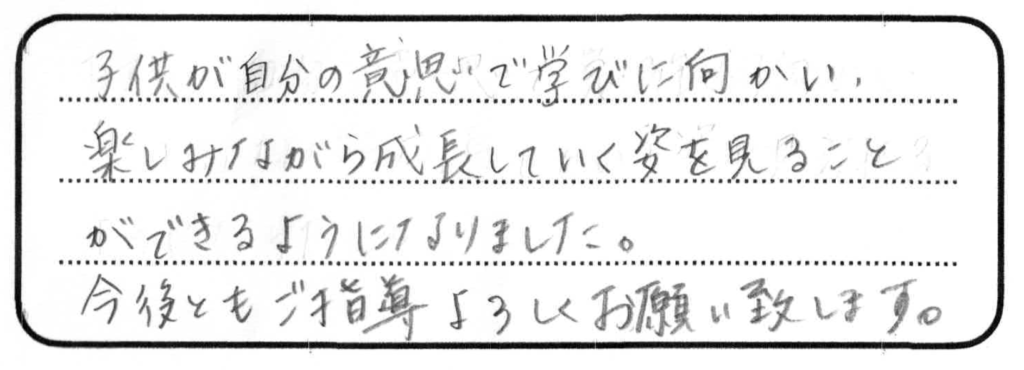 子供が自分の意思で学びに向かい、
楽しみながら成長していく姿を見ること
ができるようになりました。
今後ともご指導よろしくお願い致します。